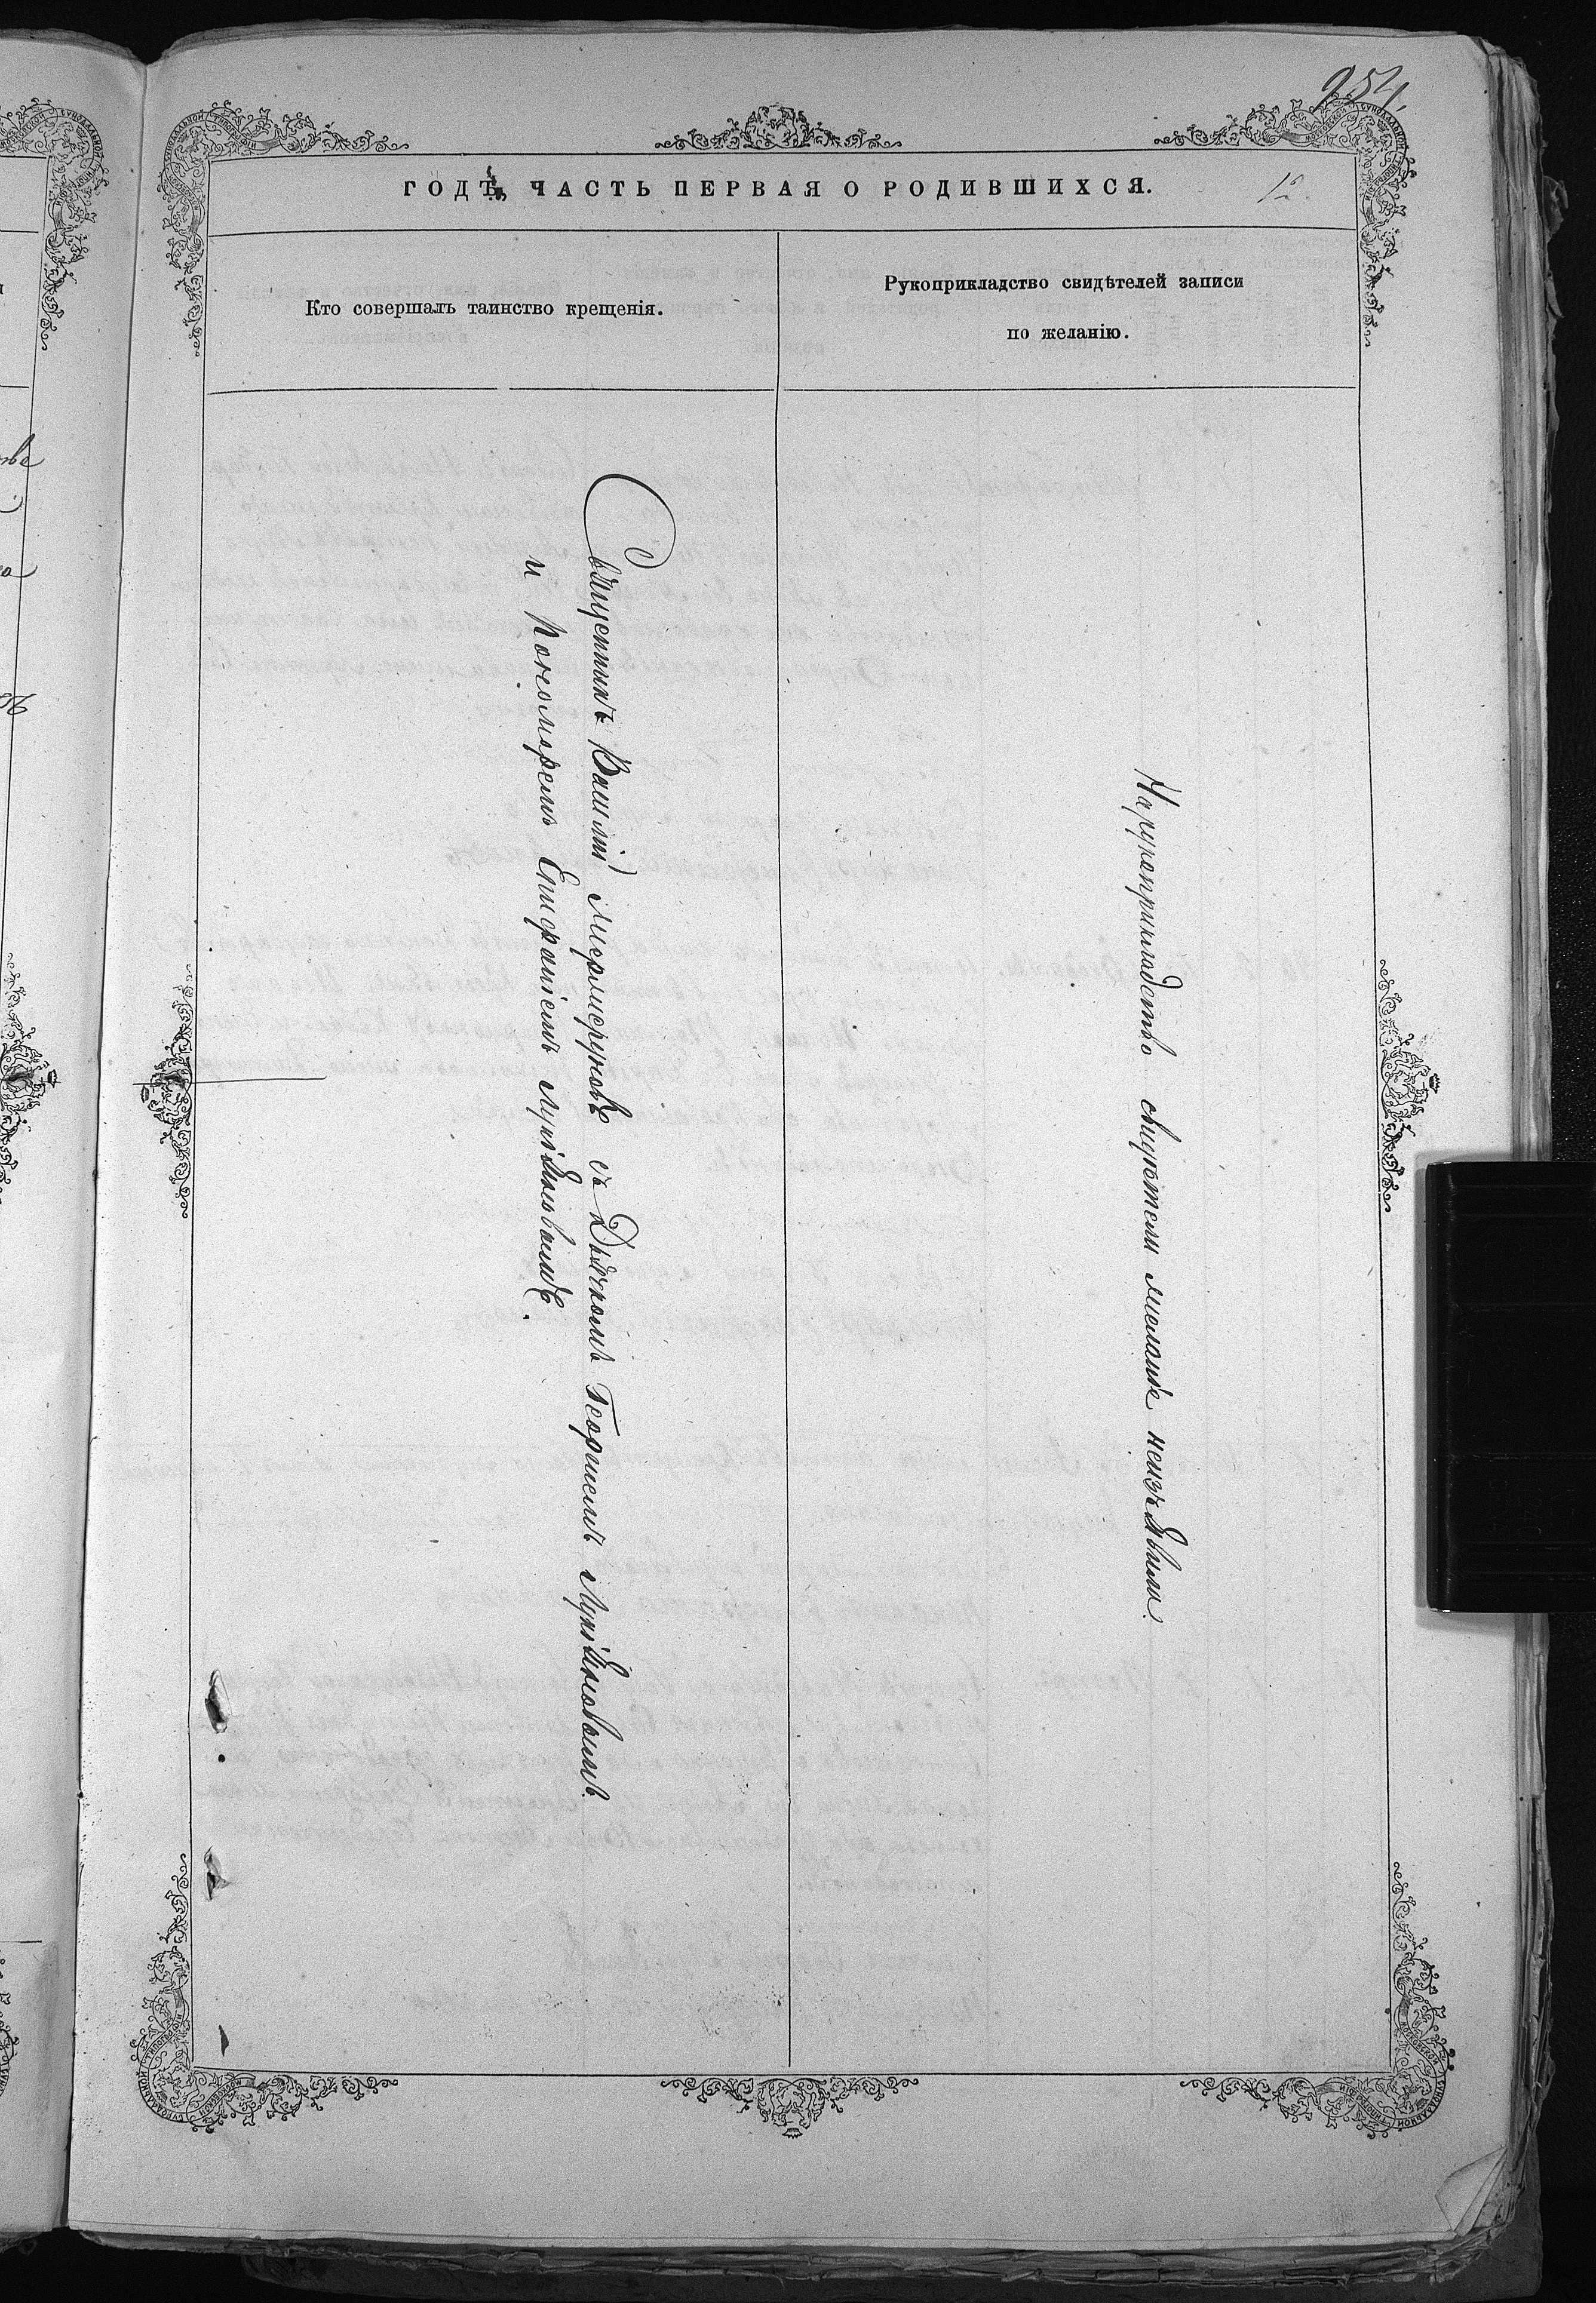 954.
ГОДѢ, ЧАСТЬ ПЕРВАЯ О РОДИВШИХСЯ.
12.
Кто совершалъ таинство крещенія.
Рукоприкладство свидѣтелей записи
по желанію.
Священникъ Василій съ Дьячкомъ Георгіемъ Лукіяновымъ
и Пономаремъ Епифаніемъ Лукіяновымъ.
На рукоприкладство свидѣтели желаніе неизъявили.